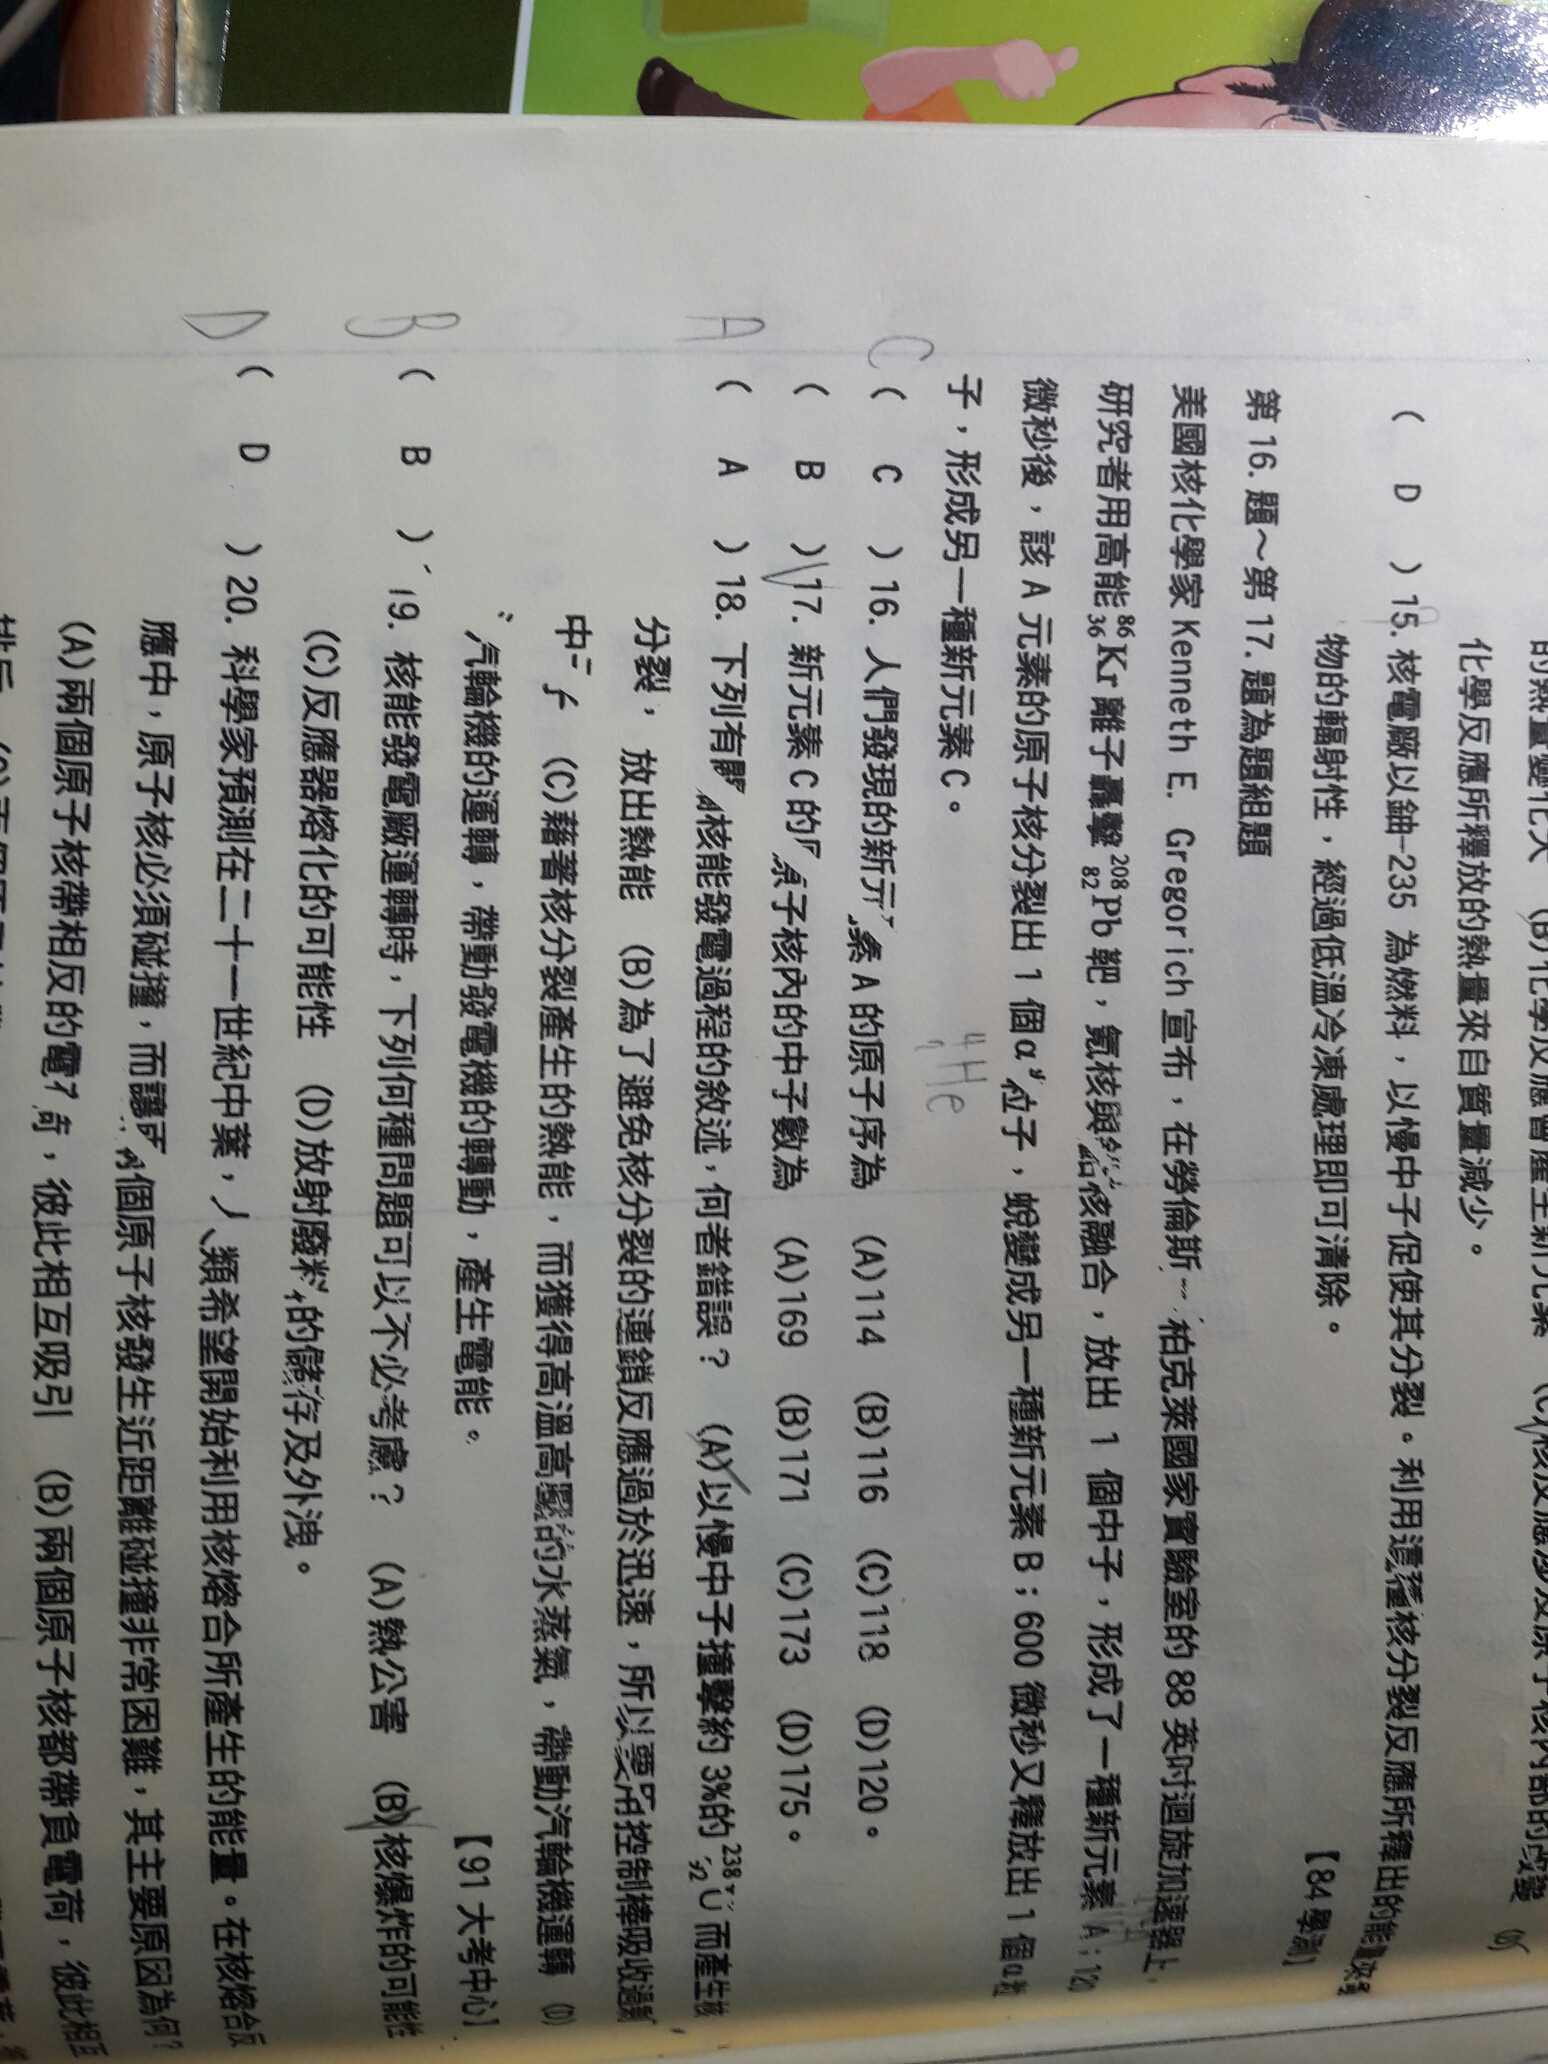 化學反應所釋放的熱量來自質量減少。
( D ) 15. 核電廠以鈾-235 為燃料，以慢中子促使其分裂。利用這種核分裂反應所釋出的能量
物的輻射性，經過低溫冷凍處理即可清除。 【84 學測】
第 16. 題～第 17. 題為題組題
美國核化學家 Kenneth E. Gregorich 宣布，在勞倫斯 柏克萊國家實驗室的 88 英吋迴旋加速器上，
研究者用高能 ⁸⁶₃₆Kr 離子轟擊 ²⁰⁸₈₂Pb 靶，氪核與鉛核融合，放出 1 個中子，形成了一種新元素 A；120
微秒後，該 A 元素的原子核分裂出 1 個 α 粒子，蛻變成另一種新元素 B；600 微秒又釋放出 1 個 α 粒
子，形成另一種新元素 C。
⁴₂He
C ( C ) 16. 人們發現的新元素 A 的原子序為 (A)114 (B)116 (C)118 (D)120。
( B ) 17. 新元素 C 的原子核內的中子數為 (A)169 (B)171 (C)173 (D)175。
A ( A ) 18. 下列有關核能發電過程的敘述，何者錯誤？ (A)以慢中子撞擊約 3%的 ²³⁸₉₂U 而產生核
分裂，放出熱能 (B)為了避免核分裂的連鎖反應過於迅速，所以要用控制棒吸收過剩
中子 (C)藉著核分裂產生的熱能，而獲得高溫高壓的水蒸氣，帶動汽輪機運轉 (D)
汽輪機的運轉，帶動發電機的轉動，產生電能。 【91 大考中心】
B ( B ) 19. 核能發電廠運轉時，下列何種問題可以不必考慮？ (A)熱公害 (B)核爆炸的可能性
(C)反應器熔化的可能性 (D)放射廢料的儲存及外洩。
D ( D ) 20. 科學家預測在二十一世紀中葉，人類希望開始利用核熔合所產生的能量。在核熔合反
應中，原子核必須碰撞，而讓兩個原子核發生近距離碰撞非常困難，其主要原因為何？
(A)兩個原子核帶相反的電荷，彼此相互吸引 (B)兩個原子核都帶負電荷，彼此相互